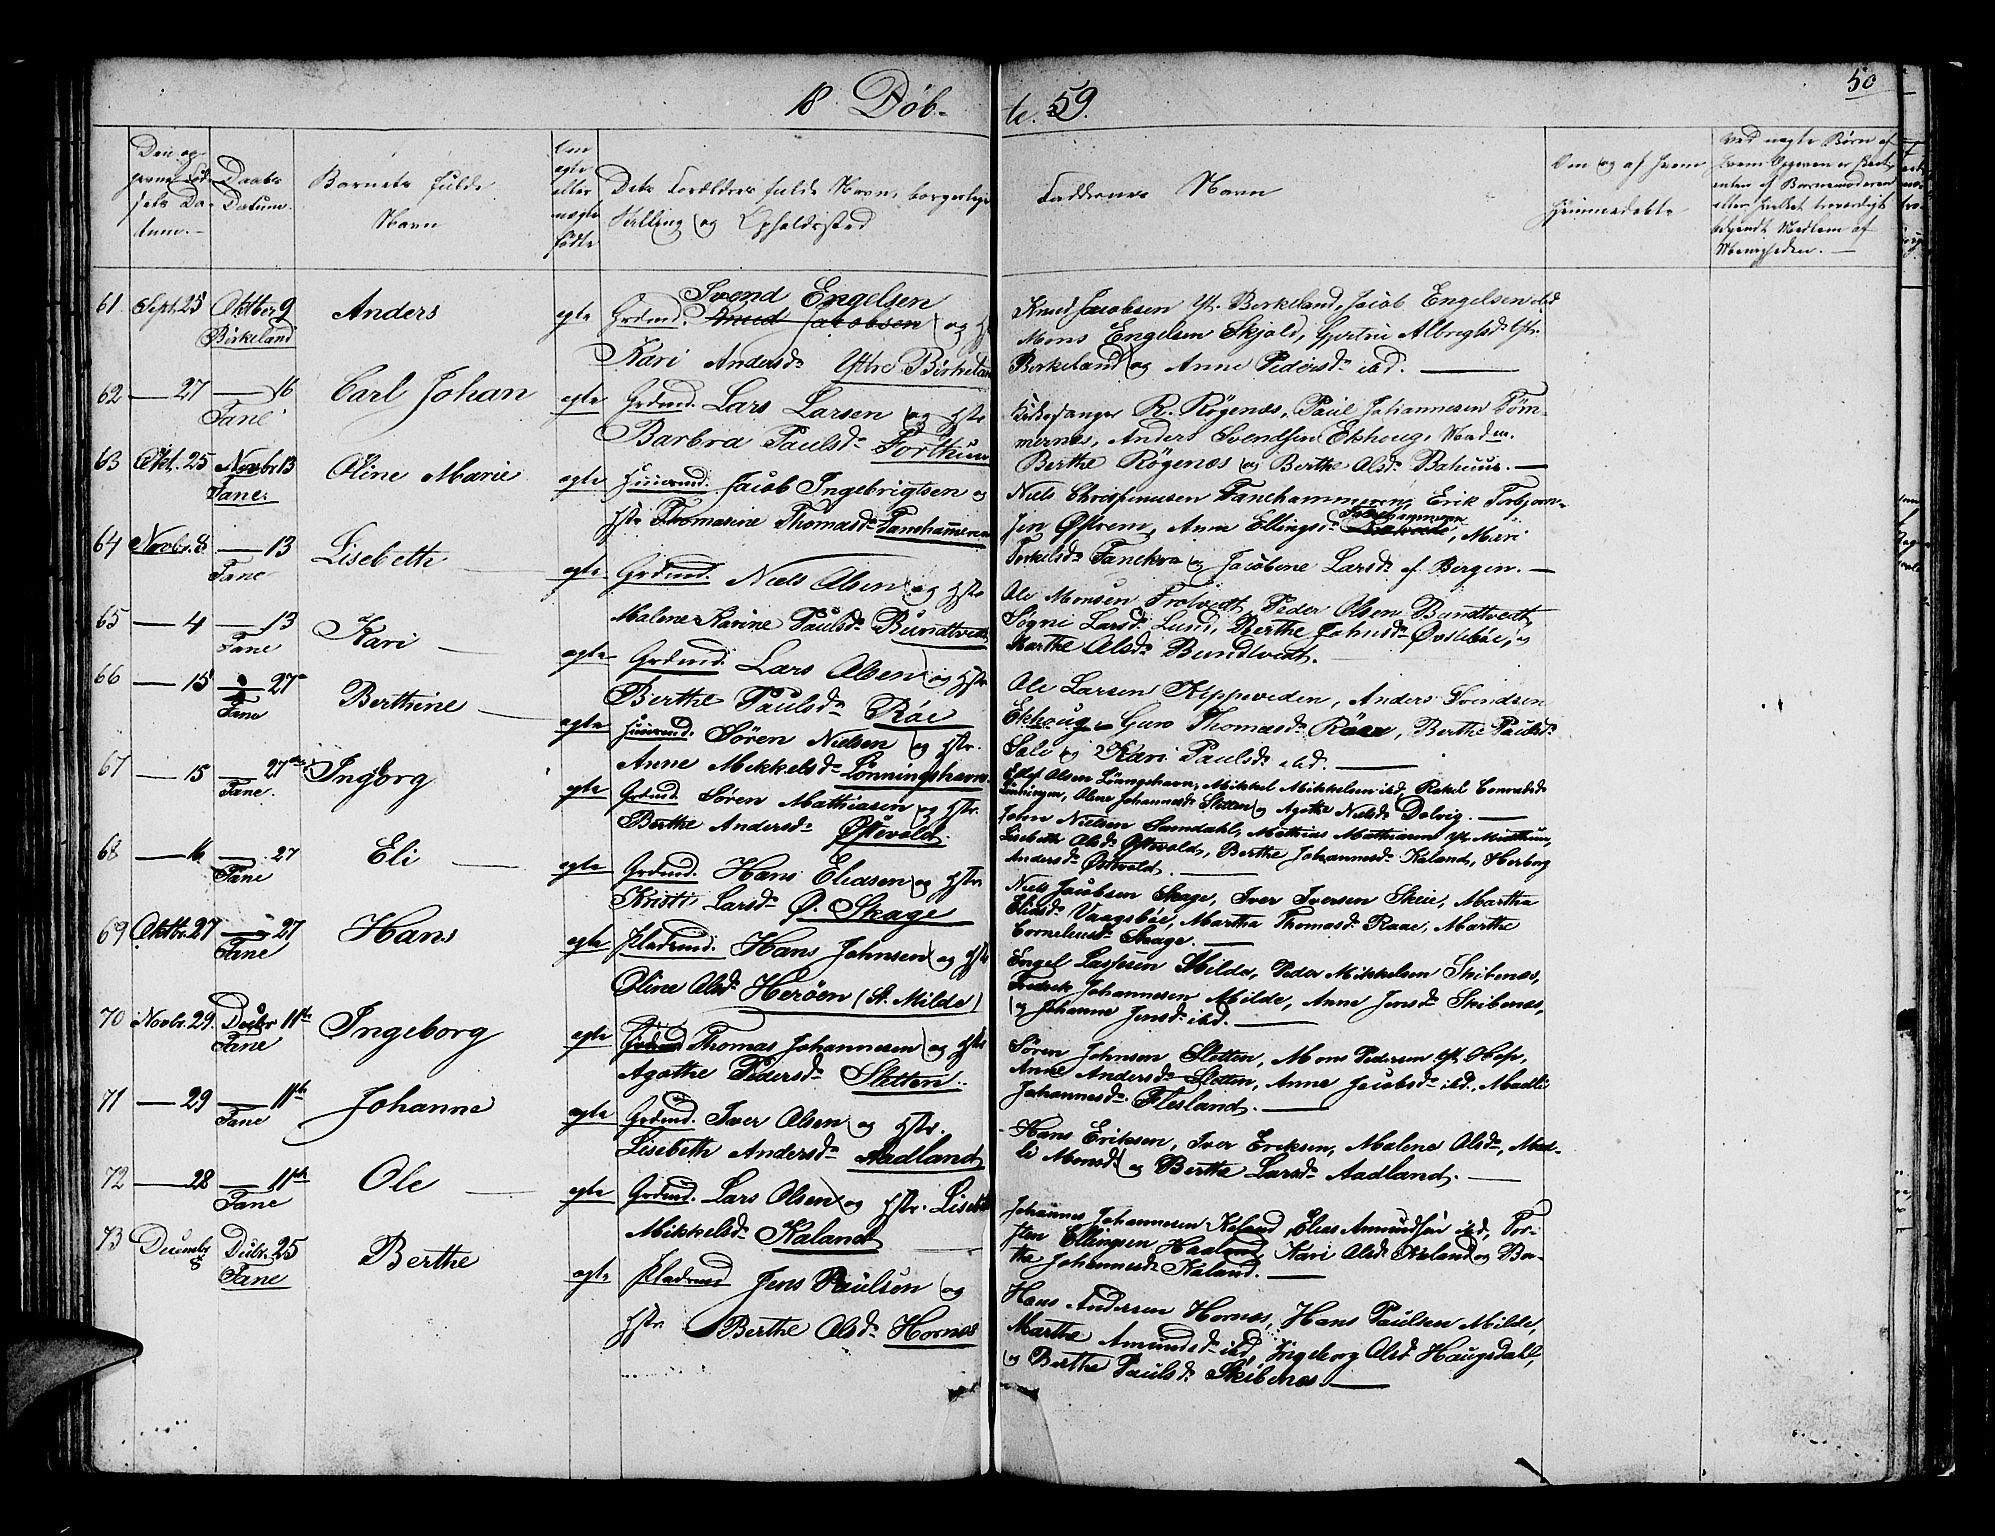 18 Døb-
te. 59.
50
Den og-
Daabs
Datum.
Barnets fulde
Navn
Om
ægte
eller
uægte
fødte
Dets Forældres fulde Navn, borgerlige
Stilling og Opholdssted
Faddernes Navn
Om og af hvem
hjemmedøbt
Ved uægte Børn af
Menigheden.
61 Sept. 25 Oktber 9 Anders ægte Grdmd. Svend Engelsen
Birkeland Knud Jacobsen og Hst
Kari Andersd. Ystre Birkeland
Knud Jacobsen Yt. Birkeland, Jacob Engelsen ibd
Mons Engelsen Skjold, Gjertru Albregtsd. Ystr
Birkeland og Anne Pedersd. ibd.
62 — 27 — 16 Carl Johan ægte Grdmd. Lars Larsen og Hstr
Fane Barbra Paulsd.
Kirkesanger R. Røgenæs, Paul Johannesen Tøm-
mernes, Anders Svendsen Ekhoug, Mad m.
Berthe Røgenæs og Berthe Olsd.
63 Okt. 25 Novbr 13 Oline Marie ægte Huusmd. Jacob Ingebrigtsen og
Fane. Hstr Thomasine Thomasd. Fanehammeren
Niels Fanehammeren, Erik Torbjørn-
sen Østrem, Anna Ellingsd. Fanehammeren, Mari
Torkelsd. og Jacobine Larsd. af Bergen.
64 Novbr. 8 — 13 Lisebeth ægte Grdmd. Niels Olsen og Hstr
Fane Malene Karine Paulsd. Bundtvedt
Ole Monsen Peder Olsen Bundtvedt,
Søgni Larsd. Lund, Berthe Johnsd. Øvslebøe, og
Marthe Olsd. Bundtvedt.
65 — 4 — 13 Kari ægte Grdmd. Lars Olsen og Hstr
Fane Berthe Paulsd. Røe
Ole Larsen Anders Svendsen
Ekhoug, Guro Thomasd. Berthe Paulsd.
Sale og Kari Paulsd. ibd.
66 — 15 — 27 Berthine ægte Huusmd. Søren Nielsen og Hstr.
Fane Anne Mikkelsd. Lønningshavn
Olsen Lønngshavn, Mikkel Mikkelsen ibd, Rakel Conradsd.
Lønningen, Oline Johannesd. Sletten og Agathe Nielsd. Dolvig.
67 — 15 — 27 Ingborg ægte Grdmd. Søren Mathiasen og Hstr.
Fane. Berthe Andersd. Østevold.
John Nielsen Samdahl, Mathias Mathiasen
Lisebeth Olsd. Østvold, Berthe Johannesd. Kaland, Herborg
Andersd. Østvold.
68 — 16 — 27 Eli ægte Grdmd. Hans Eliasen og Hstr
Fane Kristi Larsd. Ø. Skage
Niels Jacobsen Skage, Iver Iversen Skeie, Martha
Eliasd. Vaagsbøe, Martha Thomasd. Raae, Marthe
Corneliusd. Skage.
69 Oktbr. 27 — 27 Hans ægte Pladsmd. Hans Johnsen og Hstr
Fane Oline Olsd. Herøen (St. Milde)
Engel Lassesen Milde, Peder Mikkelsen Skibenæs,
Fredrik Johannesen Milde, Anne Jensd. Skibenæs,
og Johanne Jensd. ibd.
70 Novbr. 29. Decbr 11te Ingeborg ægte Grdmd Thomas Johannesen og Hstr
Fane Agathe Pedersd. Sletten.
Søren Johnsen Sletten, Mons Pedersen Yt. Hop,
Anne Andersd. Sletten, Anne Jacobsd. ibd., Madli
Johannesd. Flesland.
71 — 29 — 11te Johanne ægte Grdmd. Iver Olsen og Hstr.
Fane Lisebeth Andersd. Aadland
Hans Eriksen, Iver Eriksen, Malene Olsd., Mad-
li Monsd. og Bertha Larsd. Aadland.
72 — 28 — 11te Ole ægte Grdmd. Lars Olsen og Hstr. Lisebeth
Fane Mikkelsd. Kaland
Johannes Johannesen Kaland, Elias Amundsen ibd, Tor-
sten Ellingsen Haaland, Kari Olsd. Kaland og Ber-
the Johannesd. Kaland.
73 Decembr 8 Decbr. 25 Berthe ægte Pladsmd Jens Paulson og
Fane Hstr Berthe Olsd. Hornæs
Hans Andersen Hornæs, Hans Paulsen Milde,
Marthe Amundsd. ibd, Ingeborg Olsd. Haugsdahl,
og Berthe Paulsd. Skibenæs.